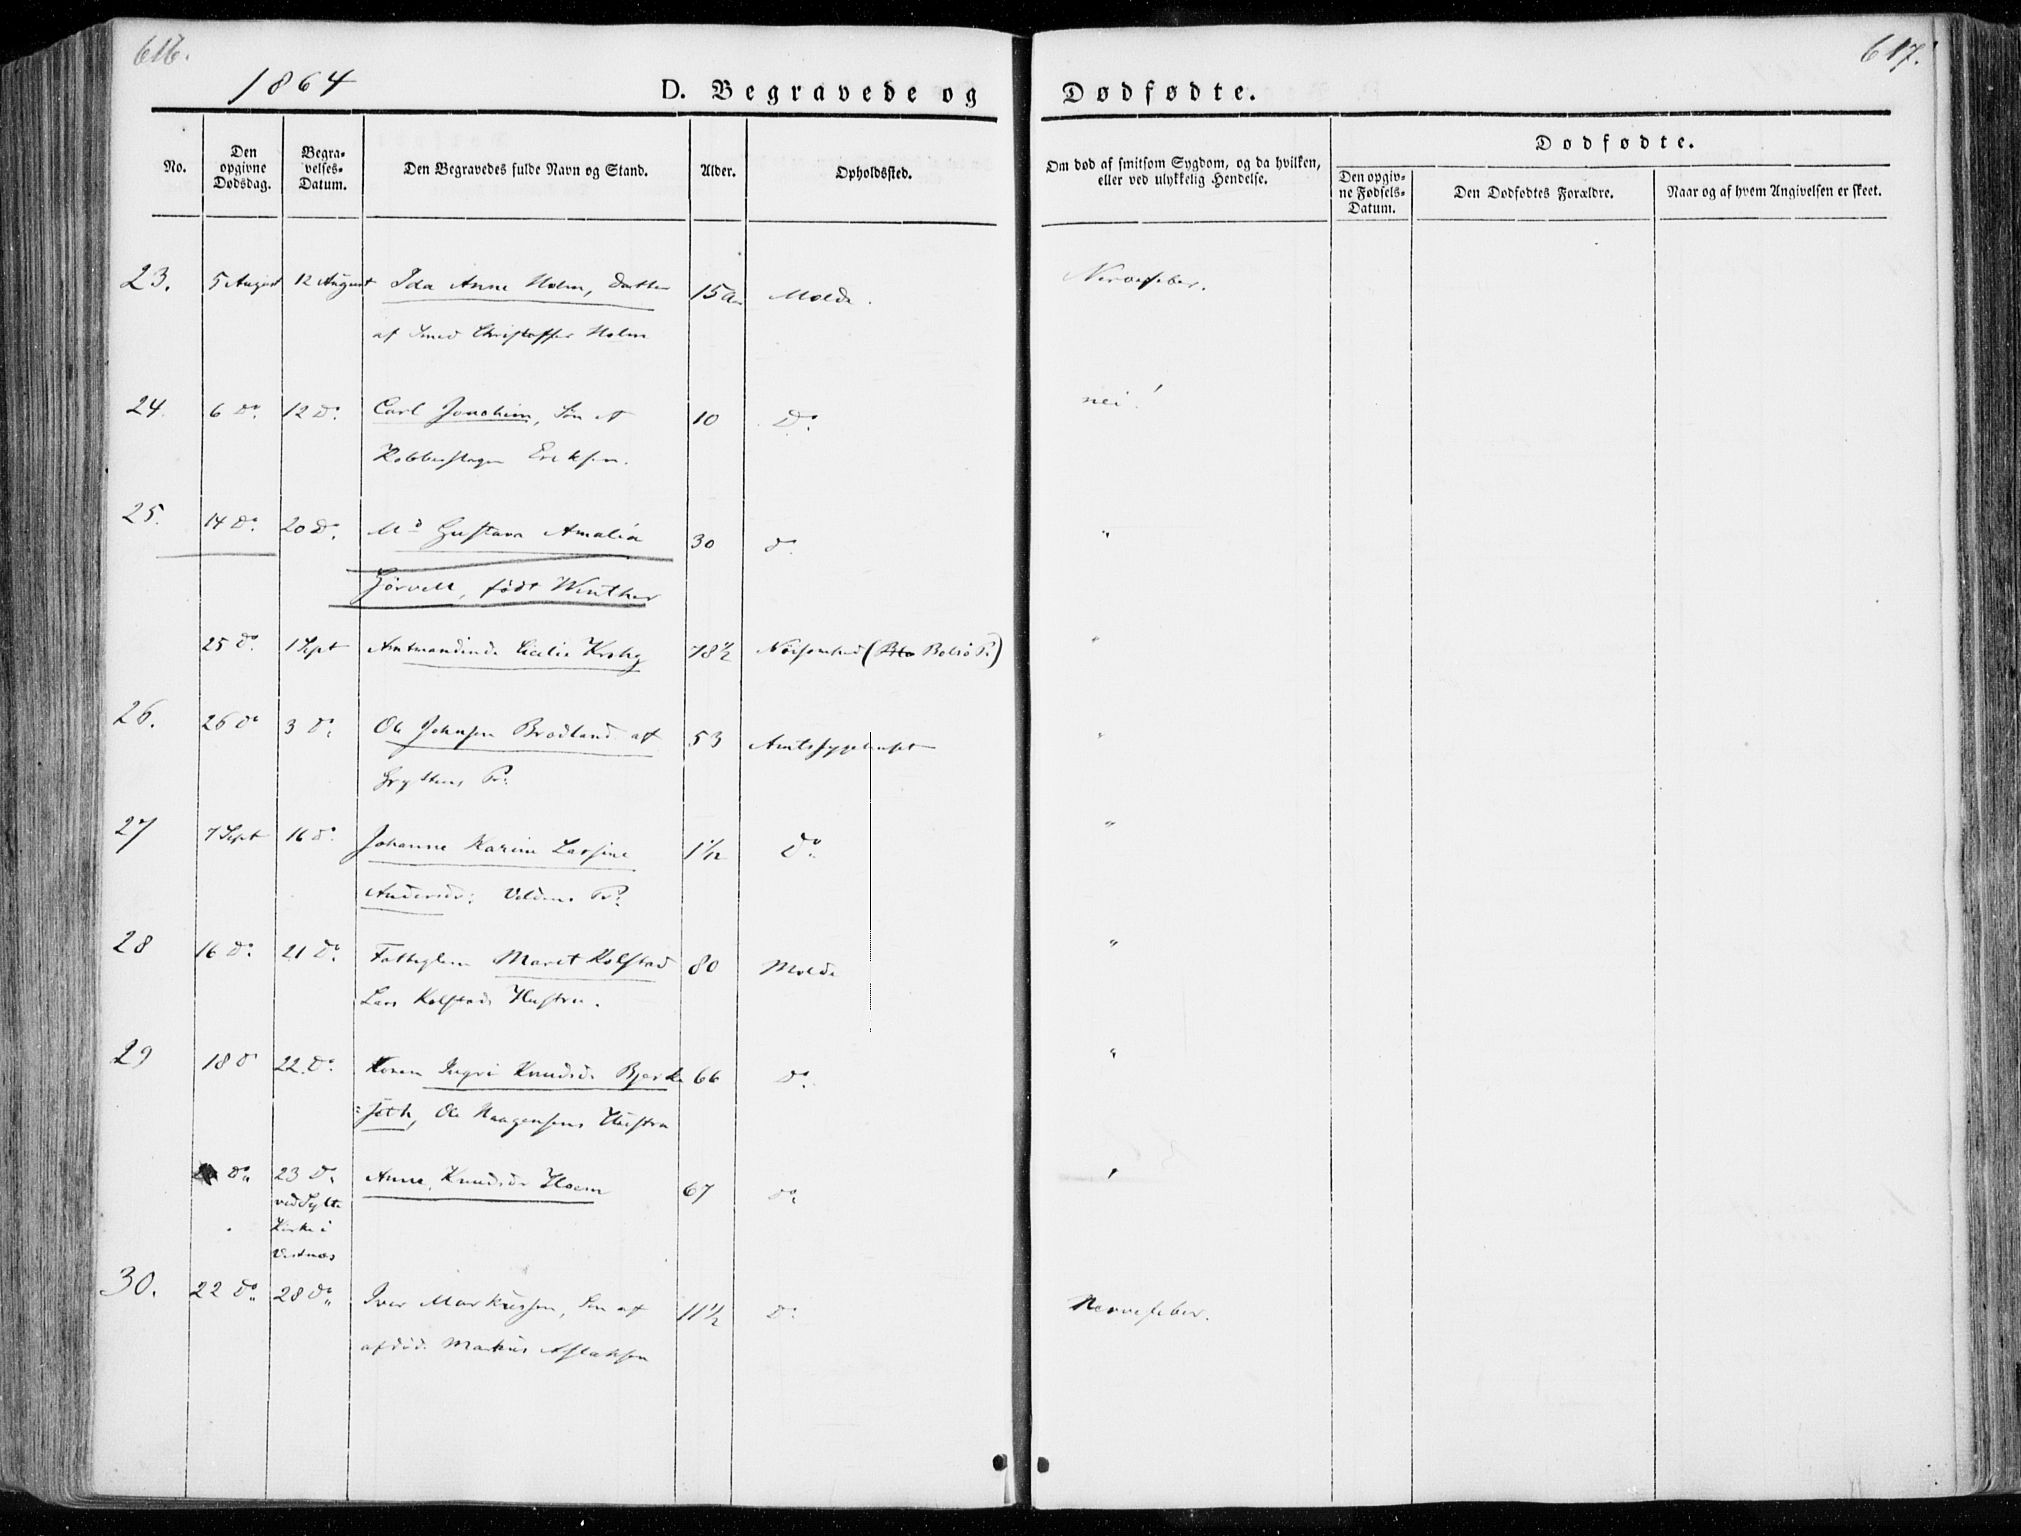 616.
617.
1864
D. Begravede og
Dødfødte.
No.
Den opgivne Dødsdag.
Begravelses-Datum.
Den Begravedes fulde Navn og Stand.
Alder.
Opholdssted.
Om død af smitsom Sygdom, og da hvilken, eller ved ulykkelig Hendelse.
Dødfødte.
Den opgivne Fødsels-Datum.
Den Dødfødtes Forældre.
Naar og af hvem Angivelsen er skeet.
23. 5 August 12 August Ida Anne Holm, Datter 15 Aar Molde. Nervefeber.
af Smed Christoffer Holm
24. 6 Do. 12 Do. Carl Joachim, Søn af 10 Do. nei!
Kobberslager Eriksen.
25. 14 Do. 20 Do. Md Gustava Amalia 30 do. "
Gørvell, født Winther
25 Do. 1 Sept Amtmandinde Cecilie Krohg 78½ Nøisomhed (Bolsø Pr) "
26. 26 do 3 do. Ole Johnsen Brødland af 53 Amtssygehuset "
Gryttens Pr.
27 7 Sept 16 do. Johanne Karine Larsine 1½ Do. "
Andersdr: Veldens Pr.
28 16 Do. 21 Do. Fattiglem Marit Kolstad 80 Molde "
Lars Kolstads Hustru.
29 18 do 22. Do. Konen Ingri Knudsdr Bjerke 66 Do. "
=seth, Ole Haagensens Hustru
Do. 23 Do. Anne Knudsdr Hoem 67 do. "
ved Sylte
Kirke i
Vestnæs
30. 22 Do. 28 Do. Iver Markussen, Søn af 11½ D. Nervefeber.
afdød. Markus Aslaksen